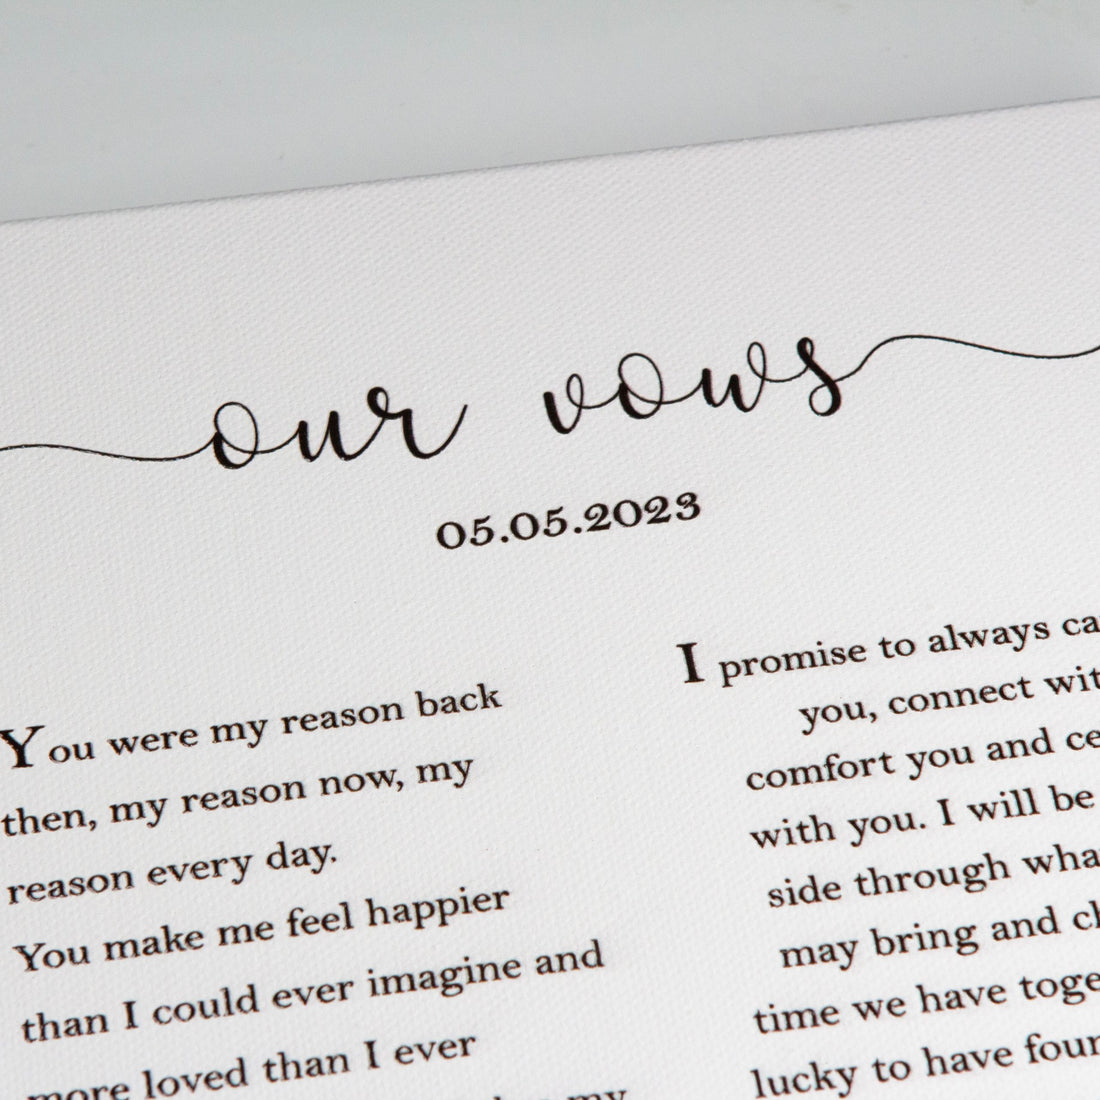 our vows
05.05.2023
You were my reason back
then, my reason now, my
reason every day.
You make me feel happier
than I could ever imagine and
more loved than I ever
my
I promise to always
you, connect
comfort you and
with you. I will be
side through
may bring and
time we have
lucky to have